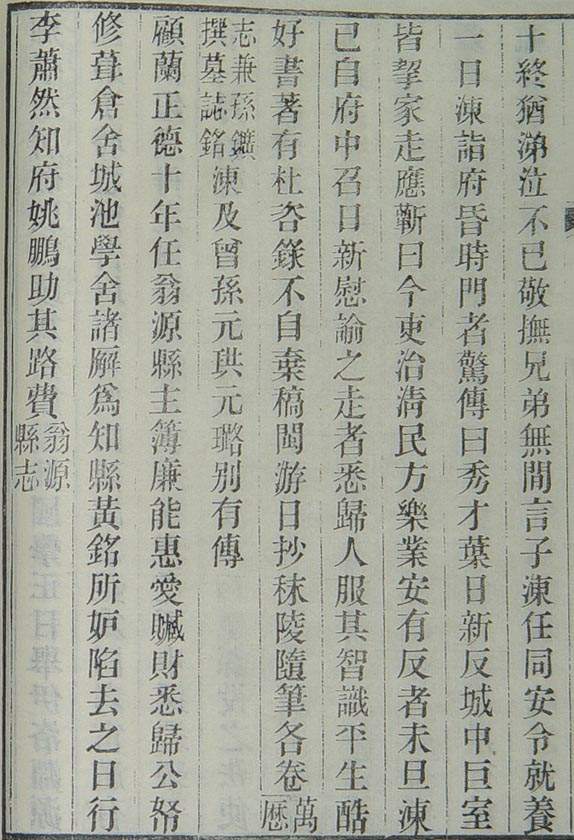 十終猶涕泣不已敬撫兄弟無間言子涷任同安令就養
一日涷詣府昏時門者驚傳曰秀才葉日新反城中巨室
皆挈家走應蘄曰今吏治淸民方樂業安有反者未旦涷
已自府中召日新慰諭之走者悉歸人服其智識平生酷
好書著有杜咨錄不自棄稿閩游日抄秣陵隨筆各卷萬厯
志兼孫鑛撰墓誌銘涷及曾孫元珙元璐别有傳
顧蘭正德十年任翁源縣主簿廉能惠愛贓財悉歸公帑
修葺倉舍城池學舍諸廨爲知縣黃銘所妒陷去之日行
李蕭然知府姚鵬助其路費翁源縣志